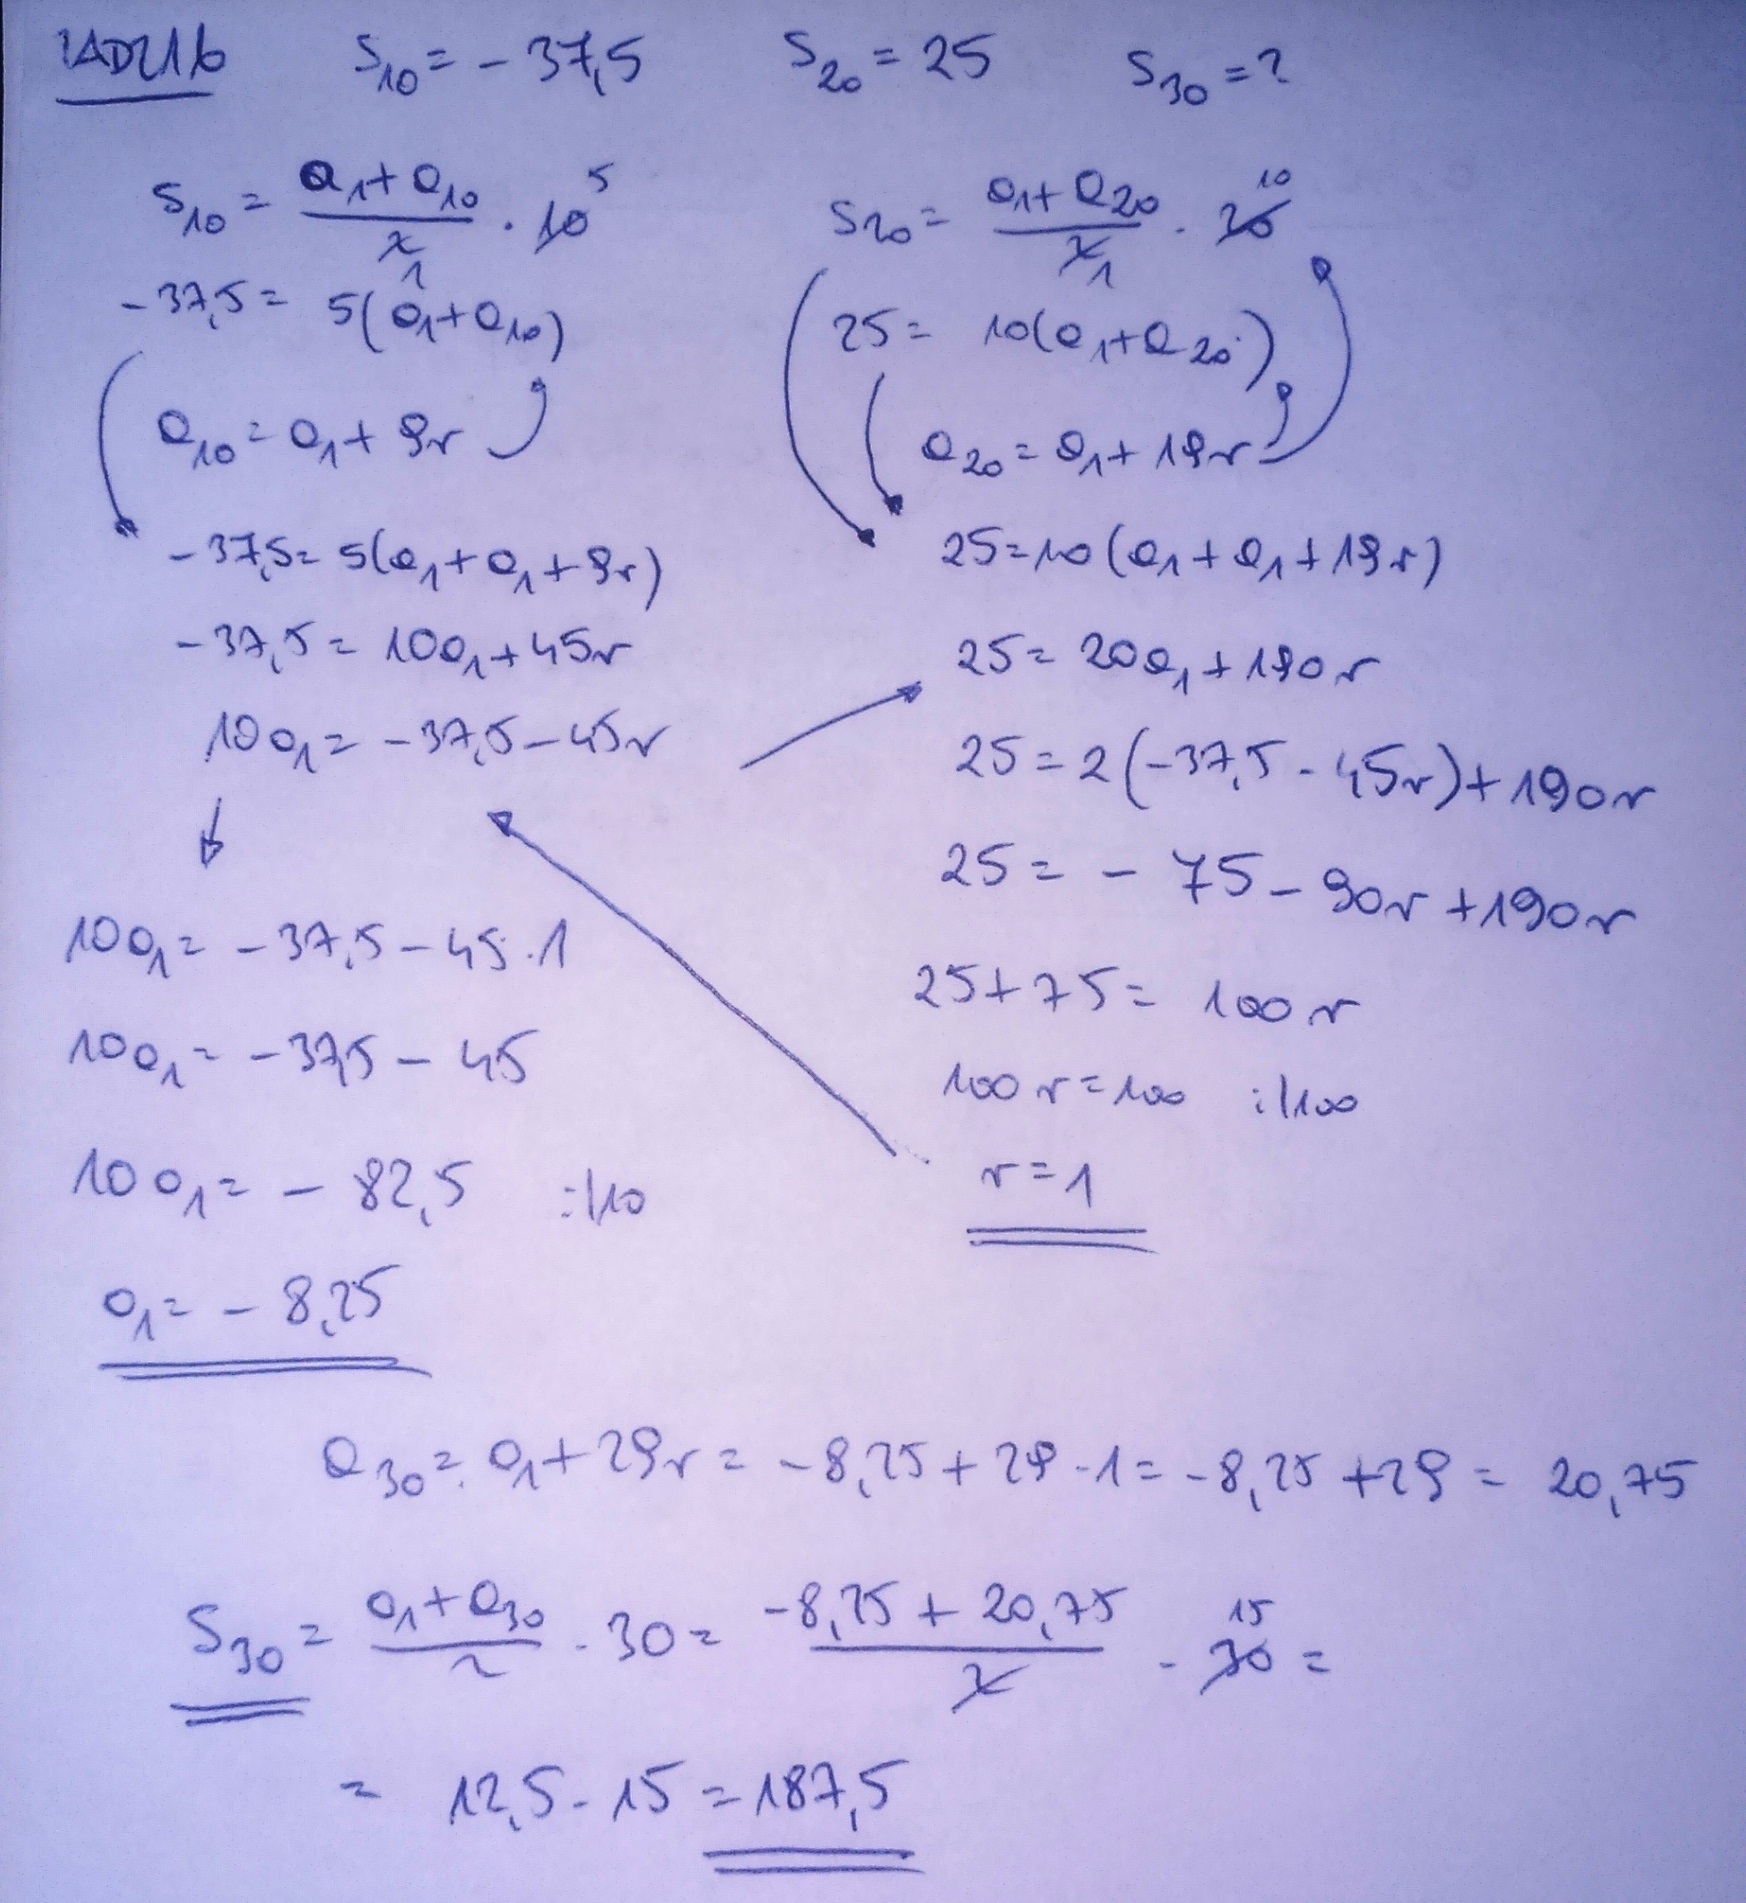 ZAD216 S₁₀ = -37,5 S₂₀ = 25 S₃₀ = ?
S₁₀ = (a₁ + a₁₀)/2 · 10 5
1
-37,5 = 5(a₁ + a₁₀)
a₁₀ = a₁ + 9r
-37,5 = 5(a₁ + a₁ + 9r)
-37,5 = 10a₁ + 45r
10a₁ = -37,5 - 45r
10a₁ = -37,5 - 45·1
10a₁ = -37,5 - 45
10a₁ = -82,5 :/10
a₁ = -8,25
S₂₀ = (a₁ + a₂₀)/2 · 20 10
1
25 = 10(a₁ + a₂₀)
a₂₀ = a₁ + 19r
25 = 10(a₁ + a₁ + 19r)
25 = 20a₁ + 190r
25 = 2(-37,5 - 45r) + 190r
25 = -75 - 90r + 190r
25 + 75 = 100r
100r = 100 :/100
r = 1
a₃₀ = a₁ + 29r = -8,25 + 29·1 = -8,25 + 29 = 20,75
S₃₀ = (a₁ + a₃₀)/2 · 30 = (-8,25 + 20,75)/2 · 30 15 =
= 12,5 · 15 = 187,5